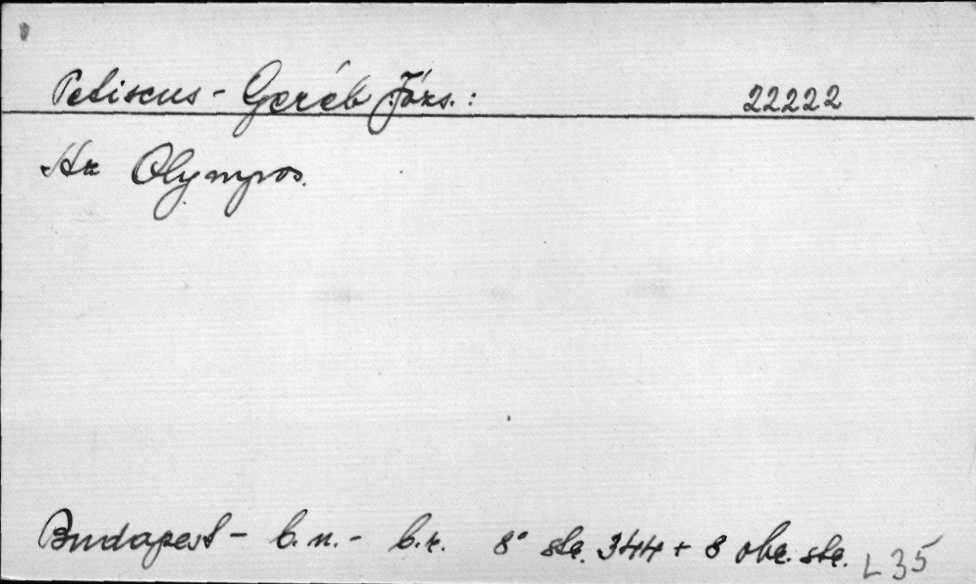 Petiscus - Geréb Józs.: 22222
Az Olympos.
Budapest - b.n. - b.r. 8° str. 344 + 8 obr. str. L 35